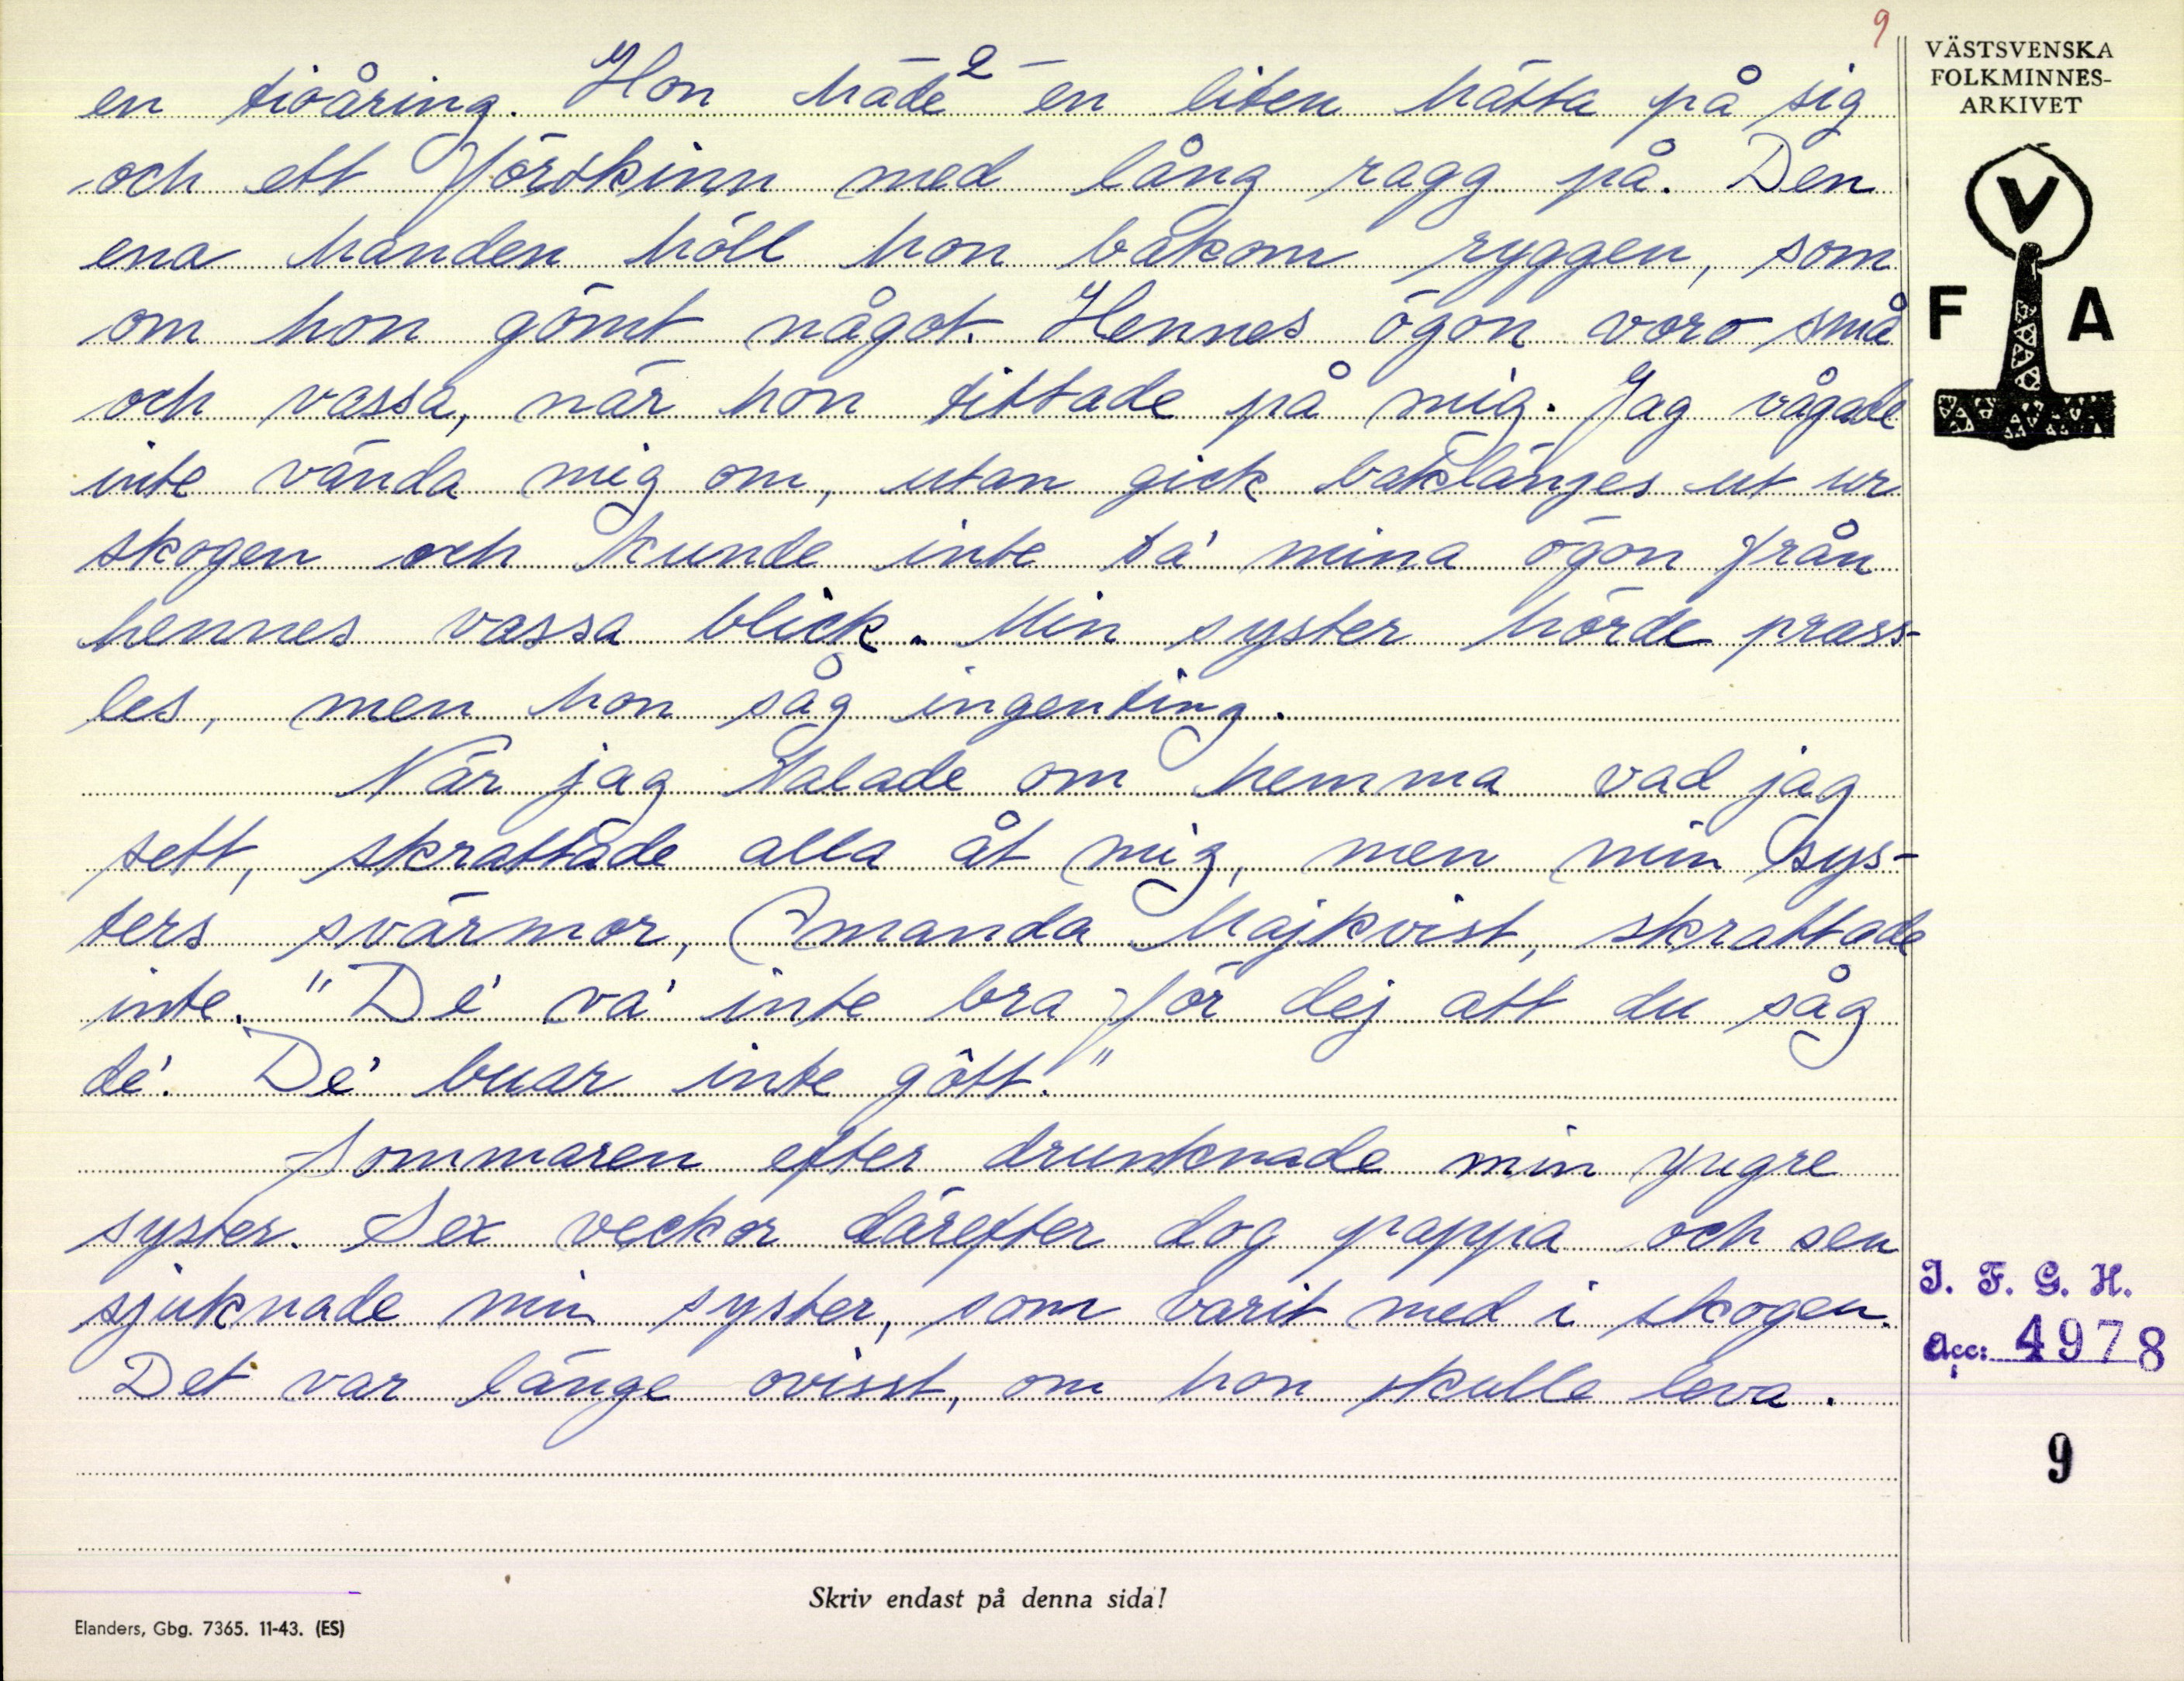 9
VÄSTSVENSKA
FOLKMINNES-
ARKIVET
V
F A
2
en tioåring. Hon hade en liten hätta på sig
och ett förskinn med lång ragg på. Den
ena handen höll hon bakom ryggen, som
om hon gömt något. Hennes ögon voro små
och vassa, när hon tittade på mig. Jag vågade
inte vända mig om, utan gick baklänges ut ur
skogen och kunde inte ta' mina ögon från
hennes vassa blick. Min syster hörde prass-
les, men hon såg ingenting.
När jag talade om hemma vad jag
sett, skrattade alla åt mig, men min sys-
ters svärmor, Amanda Majkvist, skrattade
inte. "De' va' inte bra för dej att du såg
de'. De' buar inte gôtt."
Sommaren efter drunknade min yngre
syster. Sex veckor därefter dog pappa och sen
sjuknade min syster, som varit med i skogen.
Det var länge ovisst, om hon skulle leva.
I. F. G. H.
Acc: 4978
9
Skriv endast på denna sida!
Elanders, Gbg. 7365. 11-43. (ES)